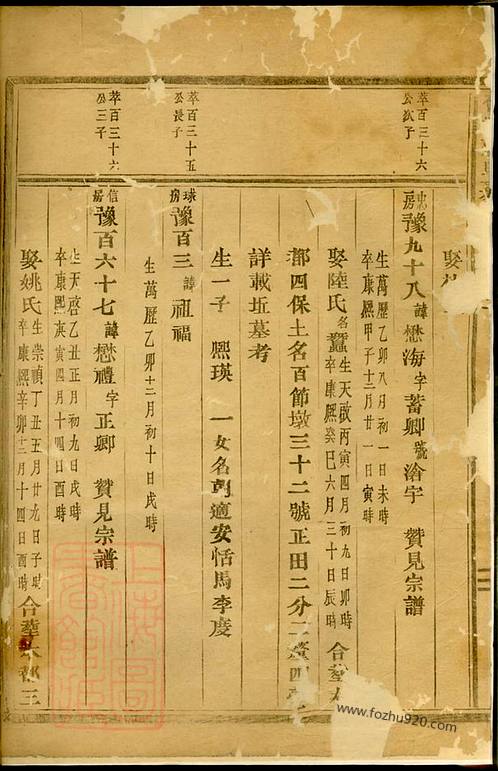 娶
萃百三十六
公次子
房豫九十八諱懋海字蓄卿號濬宇 贊見宗譜
生萬歷乙卯八月初一日未時
卒康熙甲子十二月廿一日寅時
娶陸氏名蠶生天啟丙寅四月初九日卯時
卒康熙癸巳六月三十日辰時 合葬本
都四保土名百節墩三十二號正田二分二釐四毫
詳載坵墓考
生一子 熙瑛 一女名適安恬馬李慶
萃百三十五
公長子
球房豫百三諱祖福
生萬歷乙卯十二月初十日戌時
萃百三十六
公三子
信房豫百六十七諱懋禮字正卿 贊見宗譜
生天啓乙丑正月初九日戌時
卒康熙庚寅四月十四日酉時
娶姚氏生崇禎丁丑五月廿九日子時
卒康熙辛卯十二月十四日酉時 合葬本都三
www.fozhu920.com